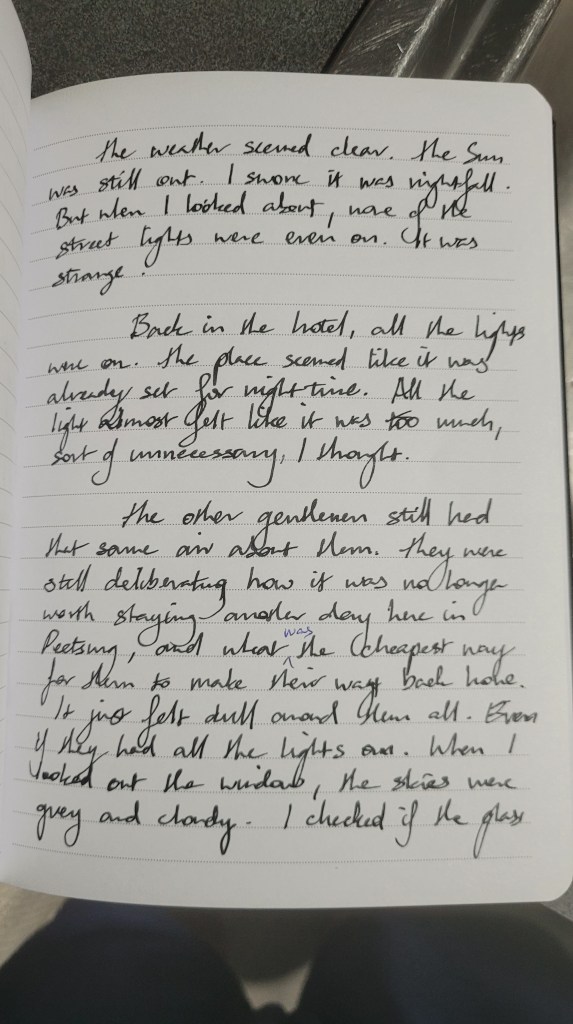 The weather seemed clear. The Sun
was still out. I swore it was nightfall.
But when I looked about, none of the
street lights were even on. It was
strange.
Back in the hotel, all the lights
were on. The place seemed like it was
already set for night time. All the
light almost felt like it was too much,
sort of unnecessary, I thought.
The other gentlemen still had
that same air about them. They were
still deliberating how it was no longer
worth staying another day here in
Peetsung, and what was the cheapest way
for them to make their way back home.
It just felt dull around them all. Even
if they had all the lights on. When I
looked out the window, the skies were
grey and cloudy. I checked if the glass